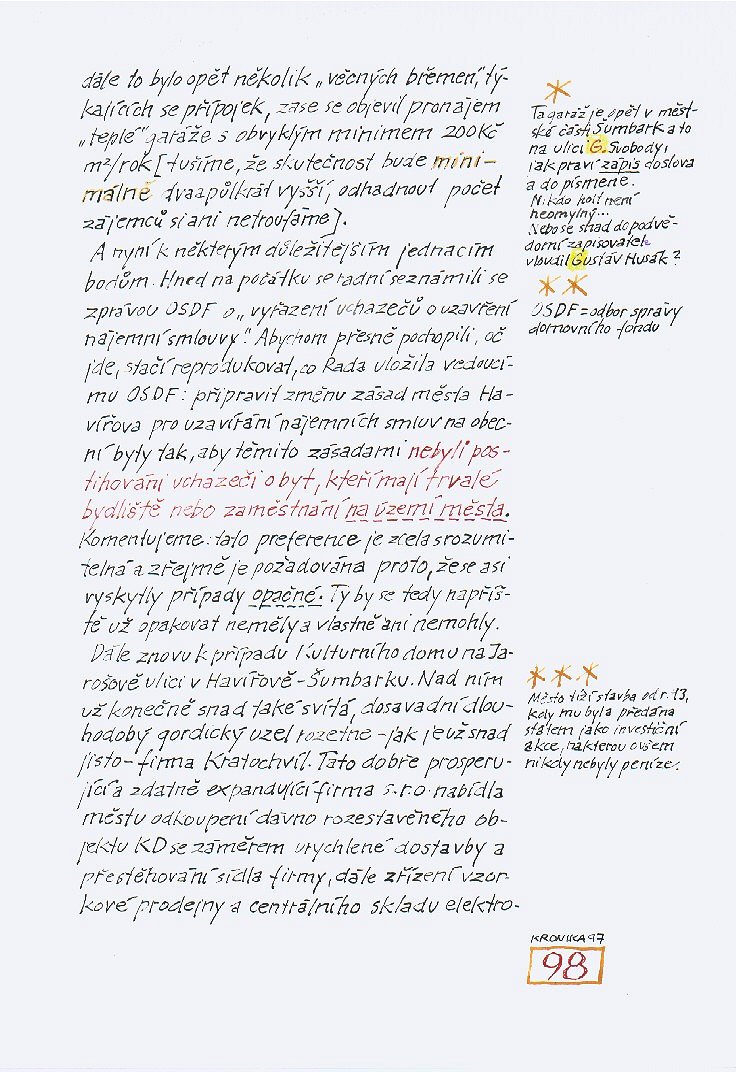 dále to bylo opět několik „věčných břemen", tý-
kajících se přípojek, zase se objevil pronájem
„teplé" garáže s obvyklým minimem 200 Kč
m²/rok [tušíme, že skutečnost bude mini-
málně dvaapůlkrát vyšší, odhadnout počet
zájemců si ani netroufáme].
A nyní k některým důležitějším jednacím
bodům. Hned na počátku se radní seznámili se
zprávou OSDF o „vyřazení uchazečů o uzavření
nájemní smlouvy". Abychom přesně pochopili, oč
jde, stačí reprodukovat, co Rada uložila vedoucí-
mu OSDF: připravit změnu zásad města Ha-
vířova pro uzavírání nájemních smluv na obec-
ní byty tak, aby těmito zásadami nebyli pos-
tihováni uchazeči o byt, kteří mají trvalé
bydliště nebo zaměstnání na území města.
Komentujeme: tato preference je zcela srozumi-
telná a zřejmě je požadována proto, že se asi
vyskytly případy opačné. Ty by se tedy napříš-
tě už opakovat neměly a vlastně ani nemohly.
Dále znovu k případu Kulturního domu na Ja-
rošově ulici v Havířově-Šumbarku. Nad ním
už konečně snad také svítá, dosavadní dlou-
hodobý gordický uzel rozetne - jak je už snad
jisto - firma Kratochvíl. Tato dobře prosperu-
jící a zdatně expandující firma s.r.o. nabídla
městu odkoupení dávno rozestavěného ob-
jektu KD se záměrem urychlené dostavby a
přestěhování sídla firmy, dále zřízení vzor-
kové prodejny a centrálního skladu elektro-
*
Ta garáž je opět v měst-
ské části Šumbark a to
na ulici G. Svobody,
jak praví zápis doslova
a do písmene.
Nikdo holt není
neomylný...
Nebo se snad do podvě-
domí zapisovatele
vloudil Gustáv Husák?
**
OSDF = odbor správy
domovního fondu
***
Město tíží stavba od r. 93,
kdy mu byla předána
státem jako investiční
akce, na kterou ovšem
nikdy nebyly peníze.
KRONIKA 97
98